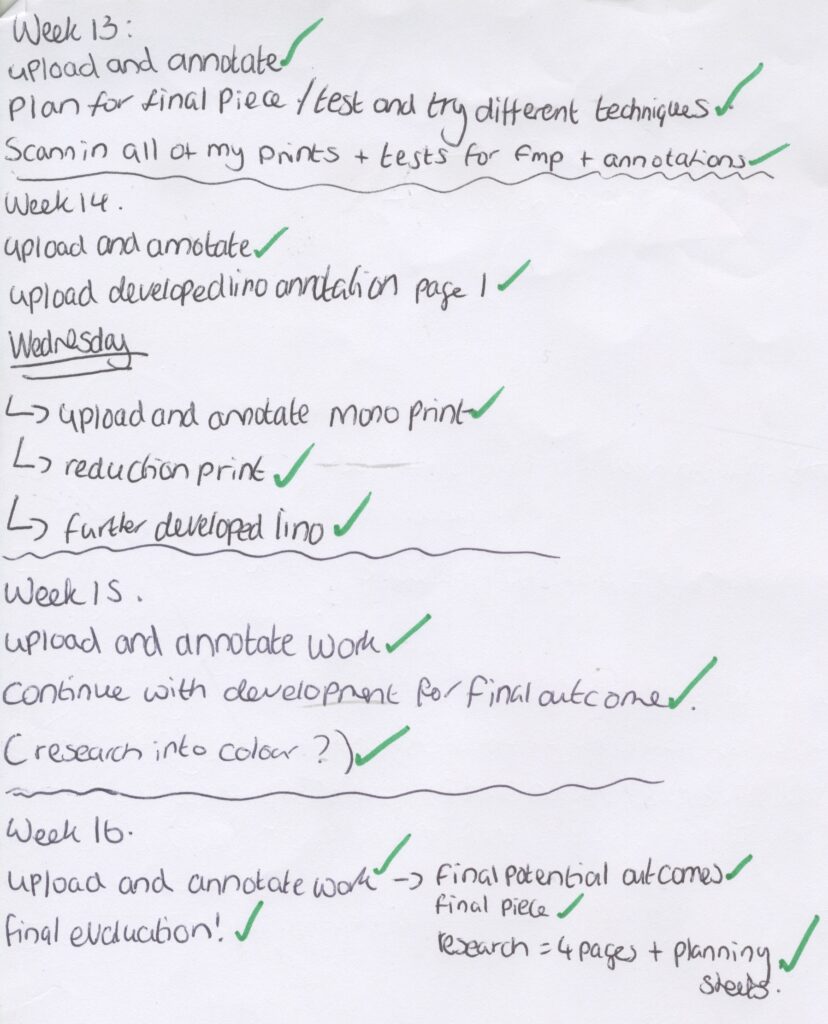 Week 13:
upload and annotate ✓
Plan for final piece / test and try different techniques ✓.
Scann in all of my prints + tests for fmp + annotations ✓
Week 14.
upload and annotate ✓
upload developed lino annotation page 1 ✓
Wednesday
↳ upload and annotate mono print ✓
↳ reduction print ✓
↳ further developed lino ✓
Week 15.
upload and annotate work ✓
continue with development for final outcome ✓.
(research into colour ?) ✓
Week 16.
upload and annotate work ✓ → final potential outcomes ✓
final piece ✓
final evaluation! ✓
research = 4 pages + planning ✓
sheets.